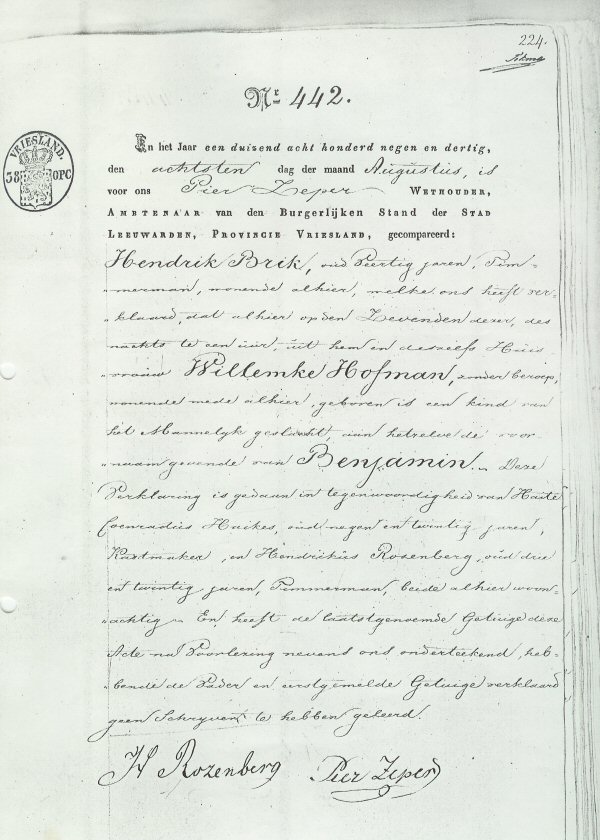 224.
No 442.
VRIESLAND.
38 OPC
In het Jaar een duizend acht honderd negen en dertig,
den achtsten dag der maand Augustus, is
voor ons Pier Zeper WETHOUDER,
AMBTENAAR van den Burgerlijken Stand der STAD
LEEUWARDEN, PROVINCIE VRIESLAND, gecompareerd:
Hendrik Brik, oud Veertig jaren, Tim-
merman, wonende alhier, welke ons heeft ver-
klaard, dat alhier op den Zevenden dezer, des
nachts te een uur, uit hem en deszelfs Huis
vrouw Willemke Hofman, zonder beroep,
wonende mede alhier, geboren is een kind van
het Mannelyk geslacht, aan hetzelve de voor-
naam gevende van Benjamin. Deze
Verklaring is gedaan in tegenwoordigheid van
Coenradus Huckes, oud negen en twintig jaren,
Kastmaker, en Hendrikus Rosenberg, oud drie
en twintig jaren, Timmerman, beide alhier woon-
achtig. En heeft de laatstgenoemde Getuige deze
Acte na Voorlezing nevens ons onderteekend, heb-
bende de Vader en eerstgemelde Getuige verklaard
geen Schryven te hebben geleerd.
H Rozenberg Pier Zeper